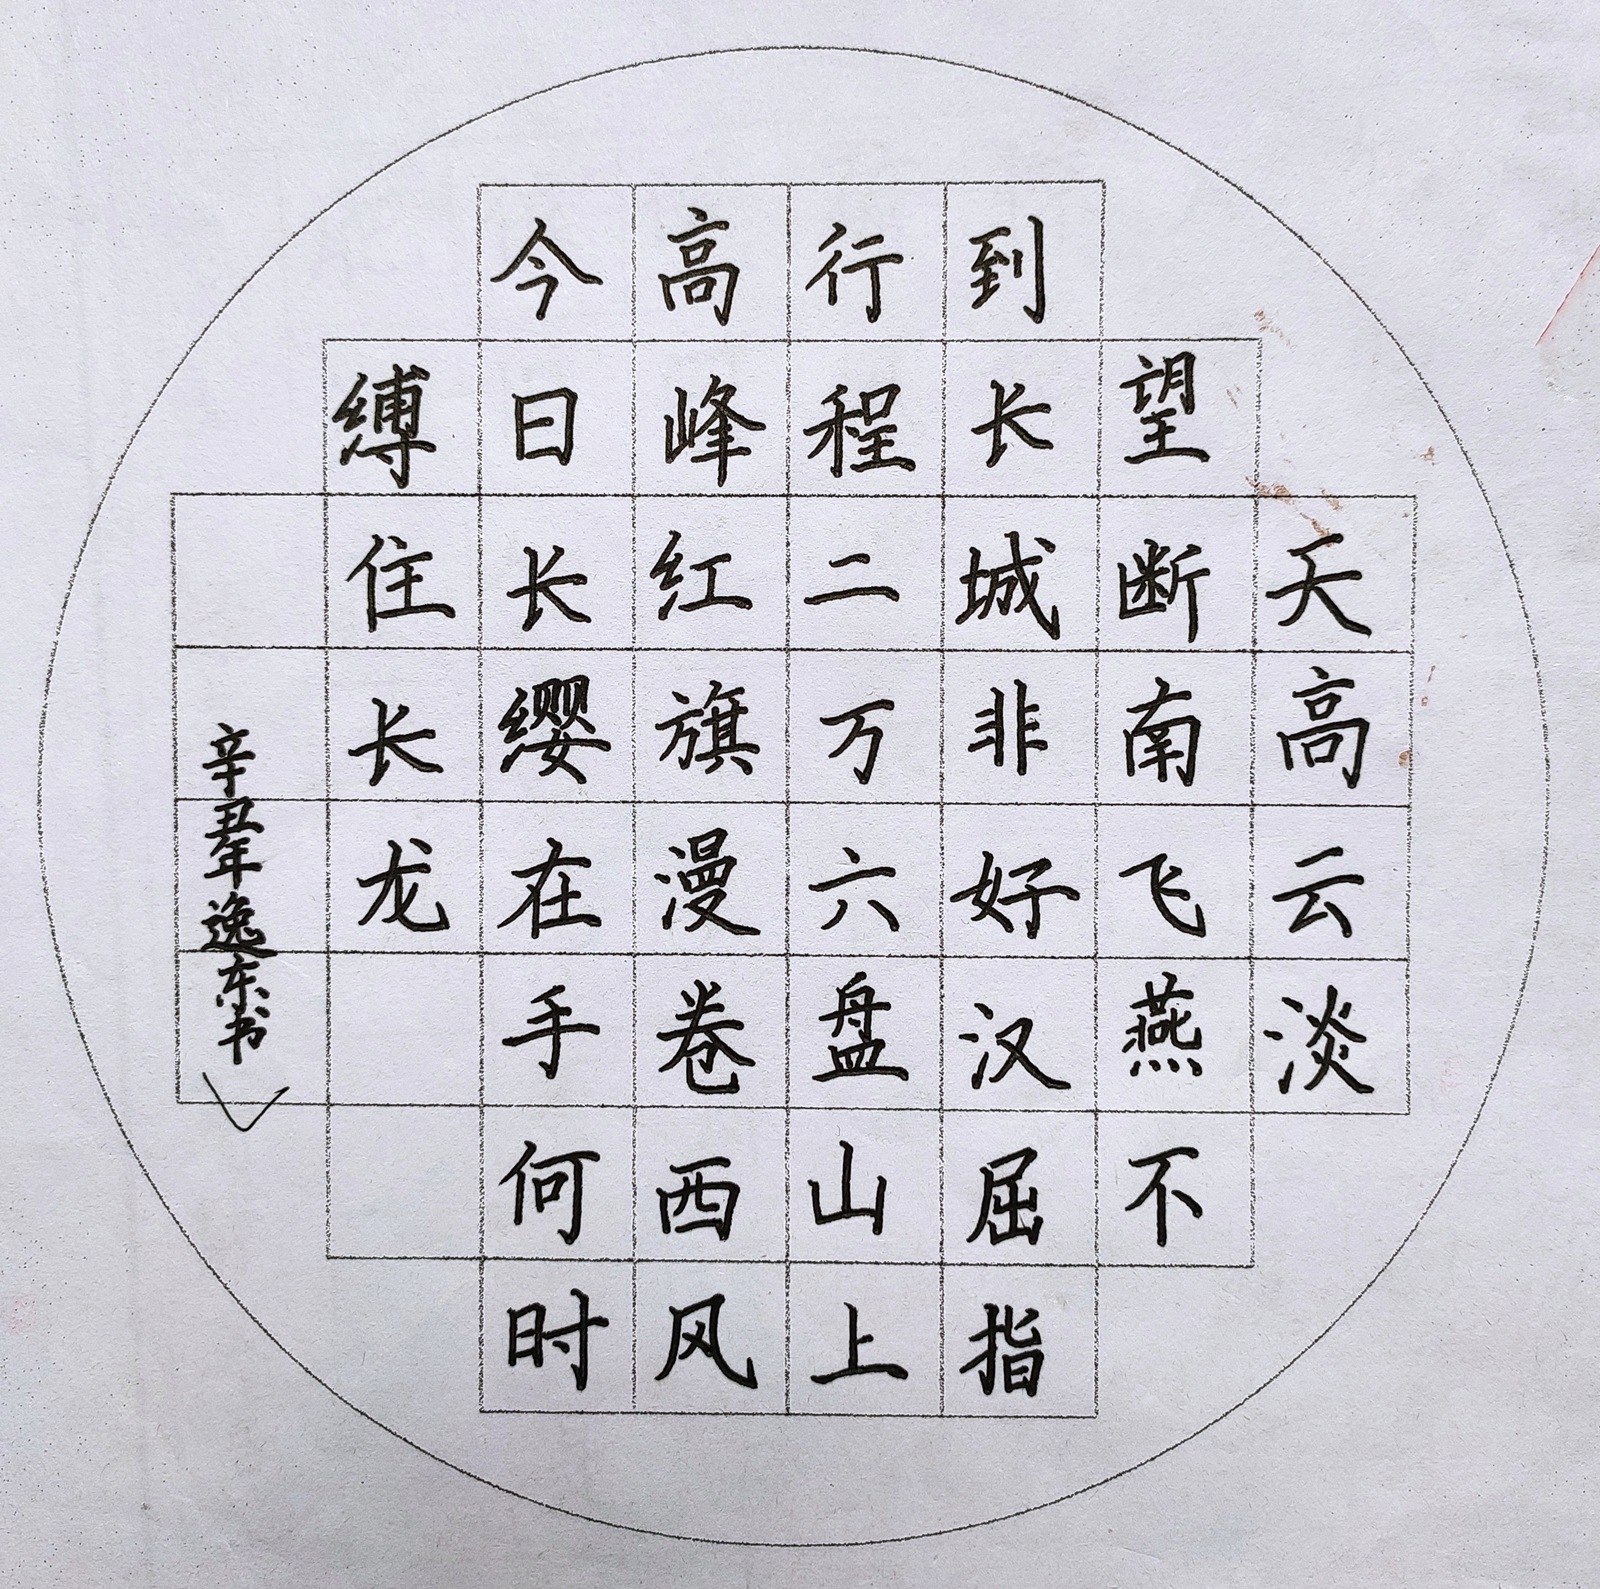 天高云淡
望断南飞燕不
到长城非好汉屈指
行程二万六盘山上
高峰红旗漫卷西风
今日长缨在手何时
缚住长龙
辛丑年逸东书